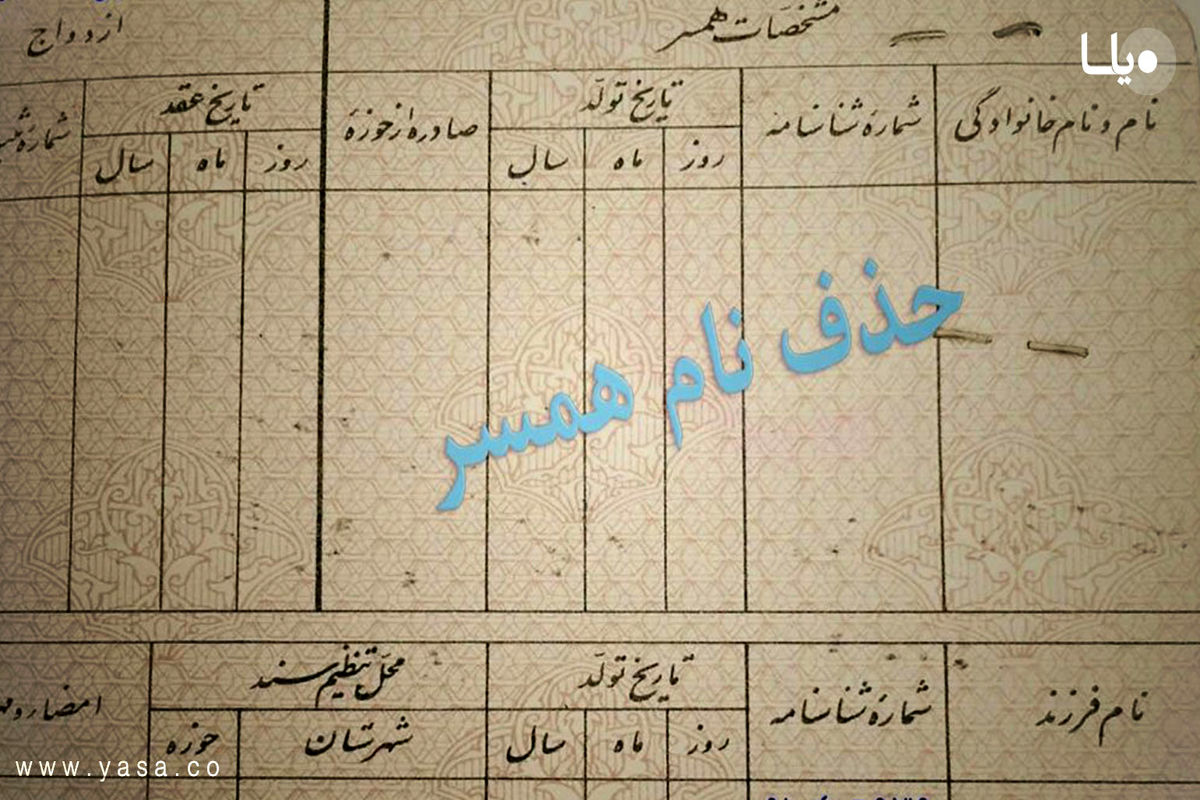 یاسا
مشخصات همسر
ازدواج
نام و نام خانوادگی
شماره شناسنامه
تاریخ تولد
روز ماه سال
صادره از حوزه
تاریخ عقد
روز ماه سال
شماره
حذف نام همسر
نام فرزند
شماره شناسنامه
تاریخ تولد
روز ماه سال
محل تنظیم سند
شهرستان حوزه
www.yasa.co